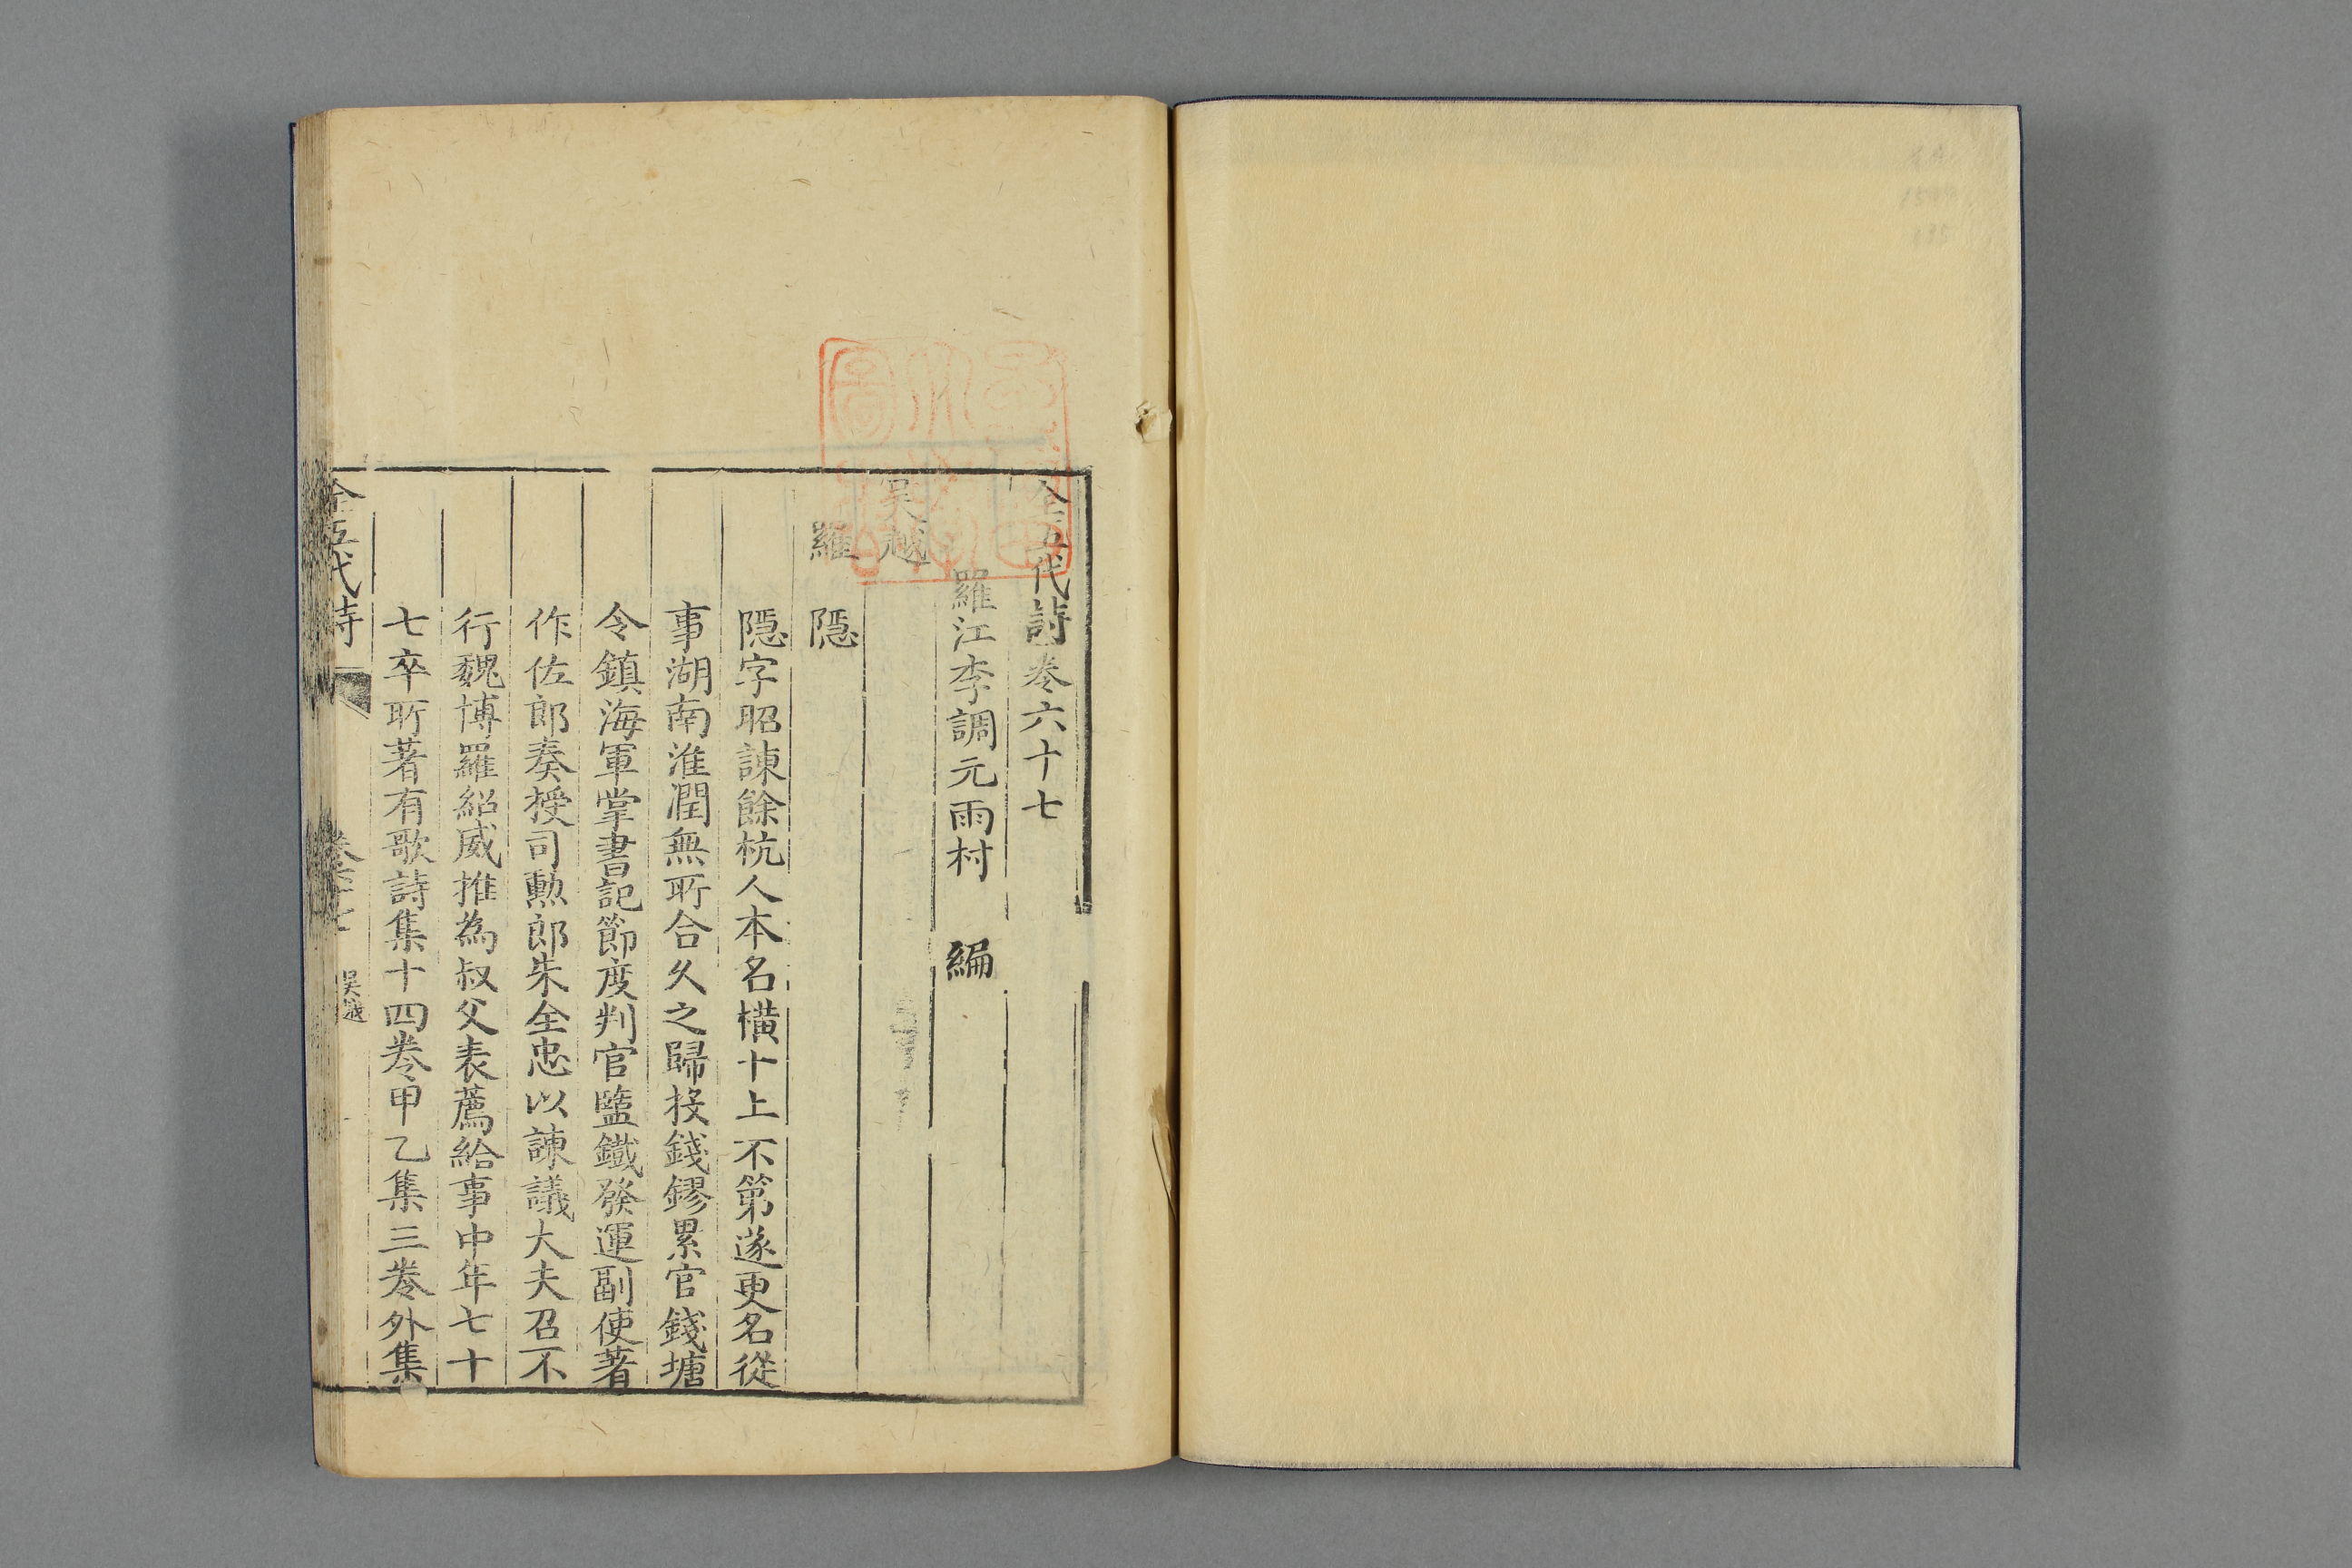 全五代詩卷六十七
羅江李調元雨村　編
吳越
羅　隱
隱字昭諫餘杭人本名橫十上不第遂更名從
事湖南淮潤無所合久之歸投錢鏐累官錢塘
令鎮海軍掌書記節度判官鹽鐵發運副使著
作佐郎奏授司勲郎朱全忠以諫議大夫召不
行魏博羅紹威推為叔父表薦給事中年七十
七卒所著有歌詩集十四卷甲乙集三卷外集
全五代詩　卷六十七　吳越